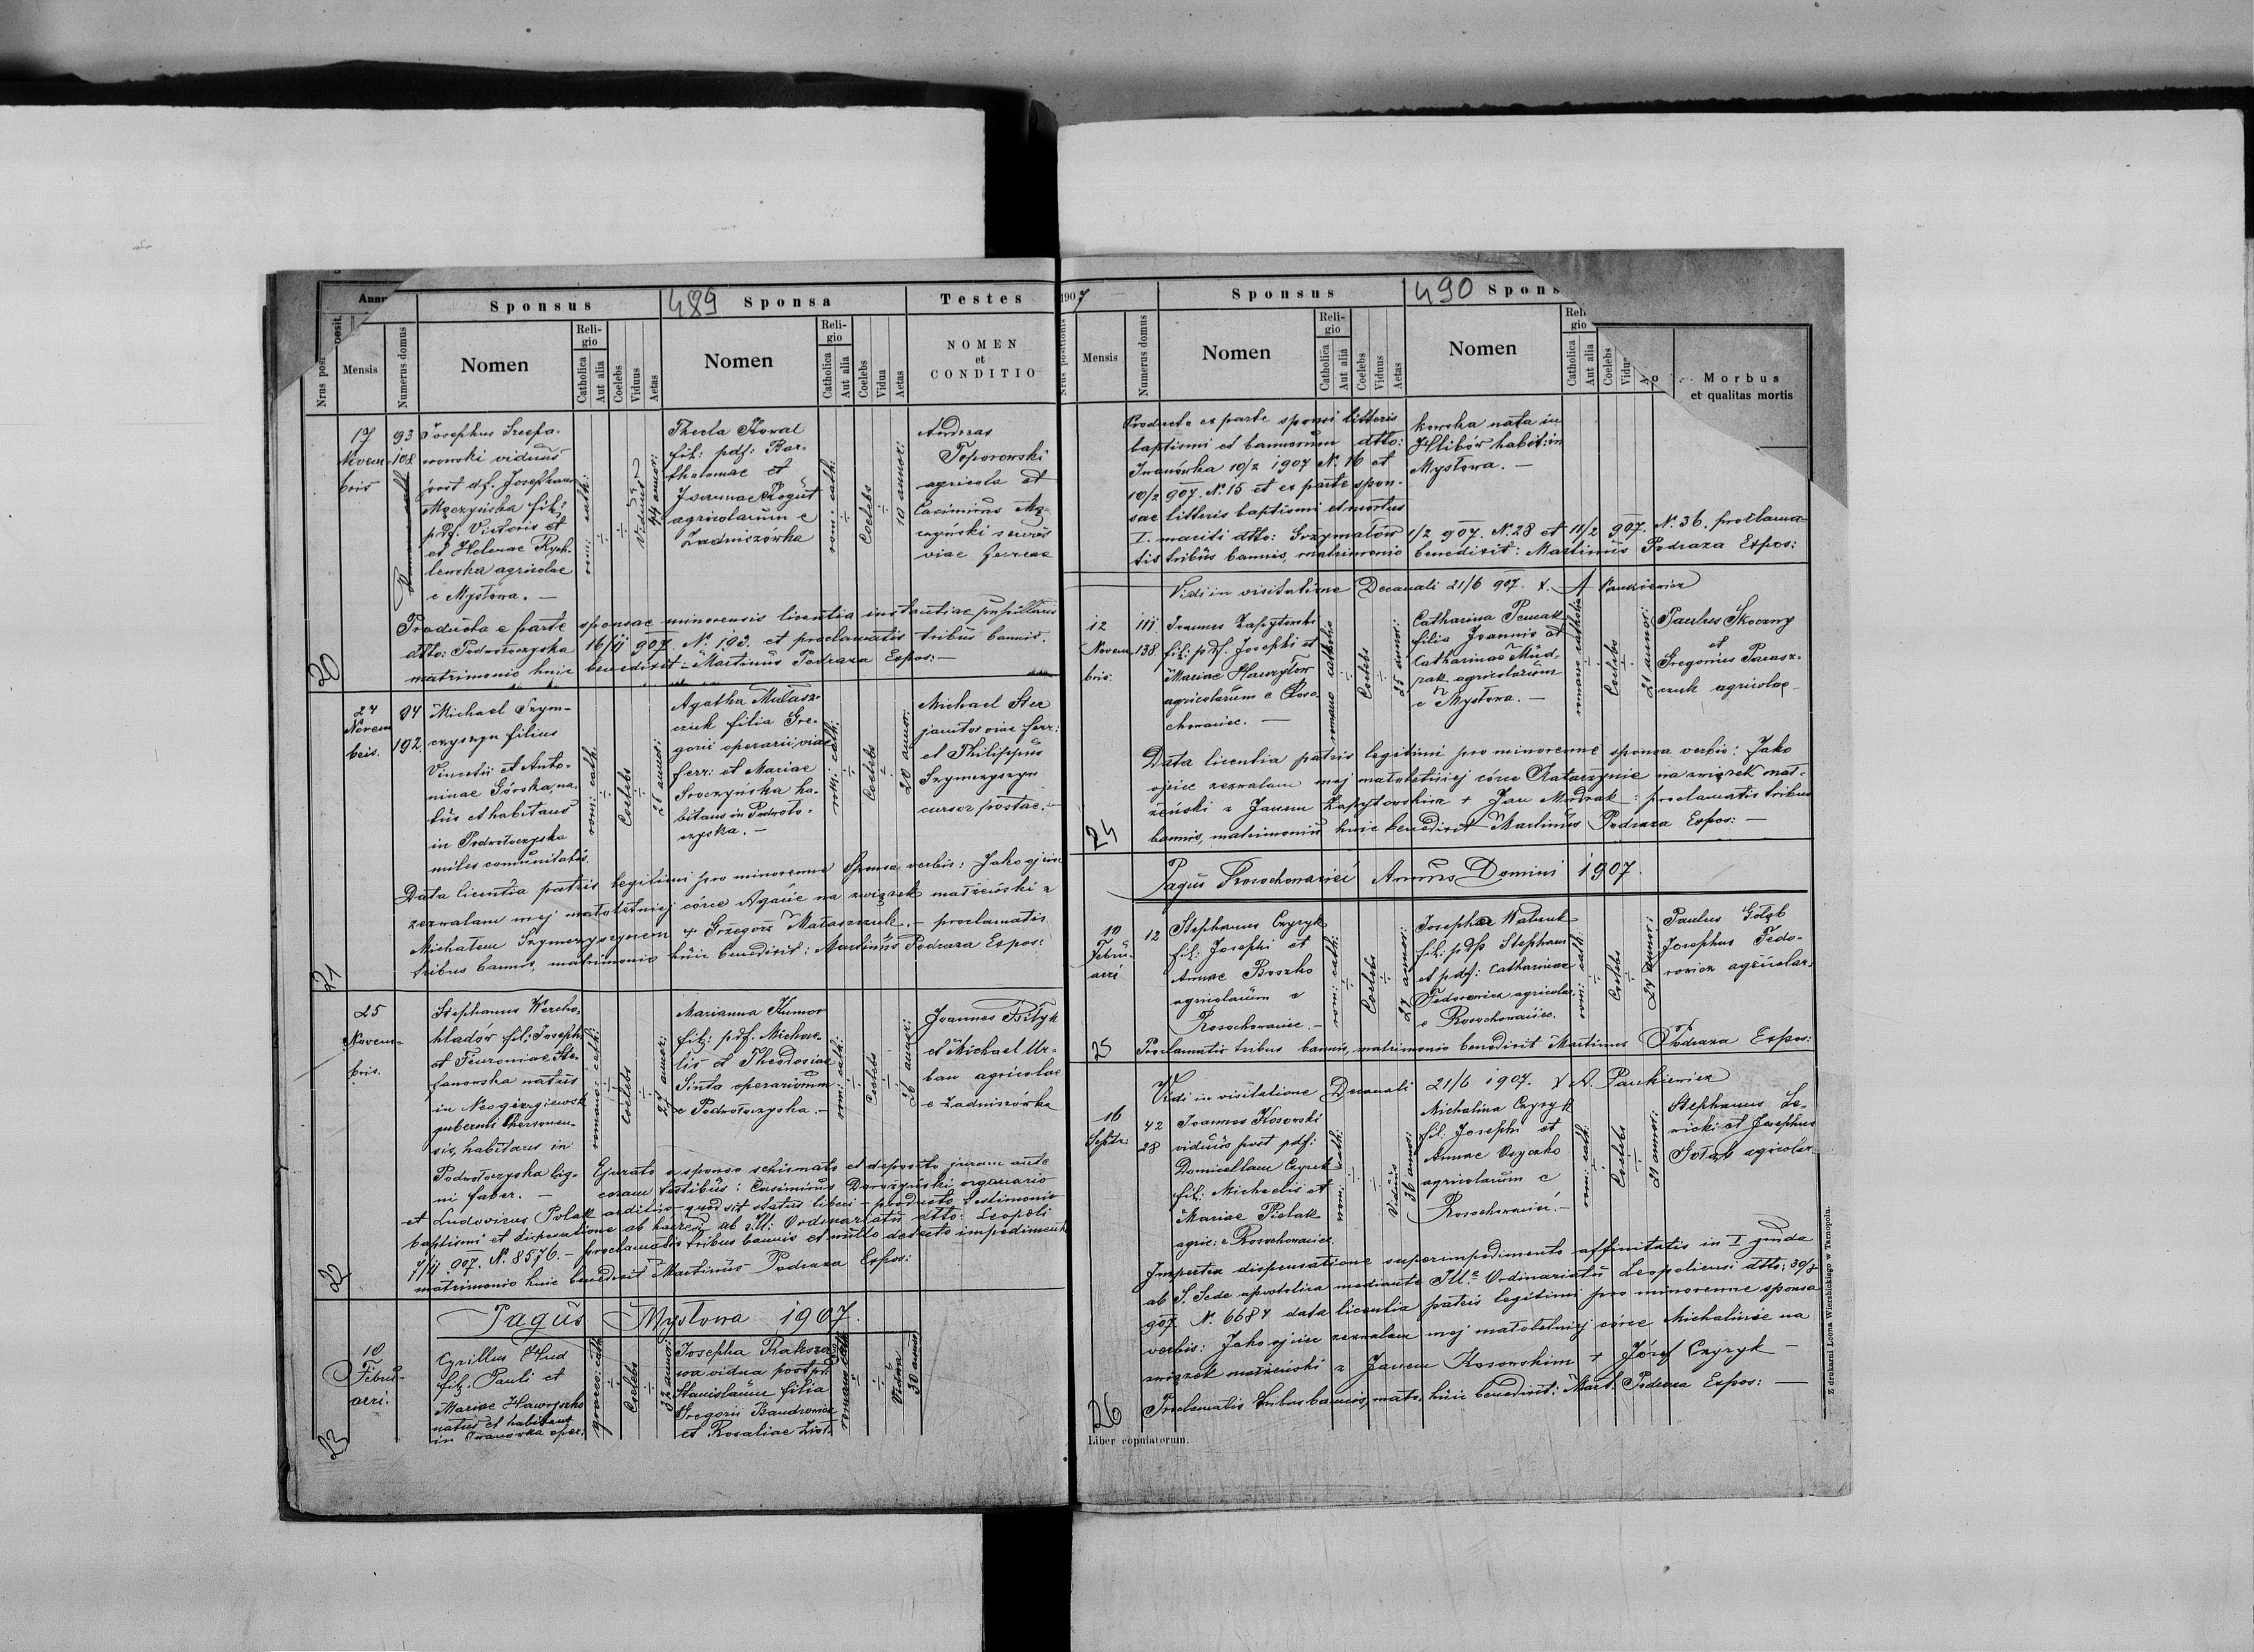 489
Sponsus
Sponsa
Testes
Nrus posit.
Mensis
Numerus domus
Nomen
Religio
Catholica
Aut alia
Coelebs
Viduus
Aetas
Nomen
Religio
Catholica
Aut alia
Coelebs
Vidua
Aetas
NOMEN
et
CONDITIO
20
17
Novem
bris
93
108
Josephus Szczepa-
nowski viduus
post df. Josepham
Męczyńska fil:
pdf. Victoris et
et Helenae Rych-
lewska agricolae
e Mysłowa. —
rom: cath:
Viduus
44 annor:
Thecla Kowal
fil: pdf: Bar-
tholomae et
Joannae Kogut
agricolarum e
Zadniszówka
rom: cath:
Coelebs
Andreas
Toporowski
agricola et
Casimirus Mę-
czyński servus
viae ferreae
Producta e parte sponsae minorensis licentia instantiae pupillaris
dtto: Podwołoczyska 16/11 907. N. 193. et proclamatis tribus bannis.
matrimonio huic benedixit: Martinus Podraza Expos: —
21
24
Novem
bris.
94
192.
Michael Szym-
czyszyn filius
Vincentii et Anto-
ninae Górska, na-
tus et habitans
in Podwołoczyska
miles comunitatis.
rom: cath.
Coelebs
Agatha Matasz-
czuk filia Gre-
gorii operarii viae
ferr: et Mariae
Sroczyńska ha-
bitans in Podwoło-
czyska. —
rom: cath:
Coelebs
20 annor:
Michael Stec
janitor viae ferr:
et Philippus
Szymczyszyn
cursor postae.
Data licentia patris legitimi pro minorenne sponsa verbis: Jako ojciec
zezwalam mej małoletniej córce Agacie na związek małżeński z
Michałem Szymczyszynem + Grzegorz Mataszczuk. — proclamatis
tribus bannis, matrimonio huic benedixit: Martinus Podraza Expos:
22
25
Novem-
bris.
Stephanus Wercho-
hladór fil: Josephi
et Feuroniae Ste-
fanowska natus
in Neogeorgiewsk
gubernii Chersonen-
sis, habitans in
Podwołoczyska lig-
ni faber. —
romano: cath:
Coelebs
27 annor:
Marianna Kumor
fil: pdf. Michae-
lis et Theodosiae
Sinta operariorum
e Podwołoczyska. —
rom: cath:
Coelebs
26 annor:
Joannes Bityk
et Michael Ur-
ban agricolae
e Zadniszówka
Ejurato a sponso schismate et deposito juram ante
coram testibus: Casimirus Dorożyński organario
et Ludovicus Polak aedituo quod sit status liberi — producto testimonio
baptismi et dispensatione ab haeresi ab Ill: Ordinariatu dtto: Leopoli
7/11 907. N. 8576. — proclamatis tribus bannis et nullo detecto impedimento
matrimonio huic benedixit Martinus Podraza Expos:
Pagus Mysłowa 1907.
23
10
Februarii.
Cyrillus Hud
fil. Pauli et
Mariae Haworszko
natus et habitans
in Iwanówka oper:
graeco: cath:
Coelebs
32 annor:
Josepha Rakszo
wa vidua post pd:
Stanislaum filia
Gregorii Bandrowicz
et Rosaliae Żwot.
romano cath:
Vidua
30 annor
1907
490
Sponsus
Spons
Nrus positionis
Mensis
Numerus domus
Nomen
Religio
Catholica
Aut alia
Coelebs
Viduus
Aetas
Nomen
Catholica
Aut alia
Coelebs
Morbus
et qualitas mortis
Producto ex parte sponsi litteris
baptismi et bannorum dtto:
Iwanówka 10/2 1907 N. 16 et
10/2 907. N. 15 et ex parte spon-
sae litteris baptismi et mortis
I. mariti dtto: Grzymałów 1/2 907. N. 28 et 11/2 907. N. 36. proclama-
tis tribus bannis, matrimonio benedixit: Martinus Podraza Expos:
kowska nata in
Hlibów habit: in
Mysłowa. —
Vidi in visitatione Decanali 21/6 907. X. A Pankiewicz
24
12
Novem
bris.
111.
138.
Joannes Zapytowski
fil: pdf. Josephi et
Mariae Hawryłow
agricolarum e Roso-
chowaciec. —
romano catholic
Coelebs
25 annor:
Catharina Pencak
filia Joannis et
Catharinae Mud-
rak agricolarum
e Mysłowa. —
romano catholic
Coelebs
21 annor:
Paulus Skoczny
et
Gregorius Pacasz-
czuk agricolae
Data licentia patris legitimi pro minorenne sponsa verbis: Jako
ojciec zezwalam mej małoletniej córce Katarzynie na związek mał-
żeński z Janem Zapytowskim + Jan Mudrak: proclamatis tribus
bannis, matrimonio huic benedixit Martinus Podraza Expos: —
Pagus Rosochowaciec Annus Domini 1907.
25
10
Februarii
12
Stephanus Czyryk
fil: Josephi et
Annae Boszko
agricolarum e
Rosochowaciec. —
rom: cath:
Coelebs
27 annor:
Josepha Walczuk
fil: pdf Stephani
et pdf: Catharinae
Fedorowicz agricolar.
e Rosochowaciec.
rom: cath:
Coelebs
24 annor:
Paulus Gołąb
Josephus Fedo-
rowicz agricolar.
Proclamatis tribus bannis, matrimonio benedixit Martinus Podraza Expos:
Vidi in visitatione Decanali 21/6 1907. X A. Pankiewicz
26
16
Septr:
42
28
Joannes Kosowski
viduus post pdf:
Domicellam Czyryk
fil: Michaelis et
Mariae Pielak
agric: e Rosochowaciec.
rom: cath:
Viduus
36 annor:
Michalina Czyryk
fil. Josephi et
Annae Boszko
agricolarum e
Rosochowaciec. —
rom: cath:
Coelebs
21 annor:
Stephanus Le-
wicki et Josephus
Gołąb agricolar.
Impertita dispensatione super impedimento affinitatis in I gradu
ab S. Sede apostolica mediante Ill. Ordinariatu Leopoliensi dtto: 30/8
907 N. 6684 data licentia patris legitimi pro minorenne sponsa
verbis: Jako ojciec zezwalam mej małoletniej córce Michalinie na
związek małżeński z Janem Kosowskim + Józef Czyryk —
Proclamatis tribus bannis, matr. huic benedixit: Mart. Podraza Expos: —
Liber copulatorum.
Z drukarni Leona Wierzbickiego w Tarnopolu.